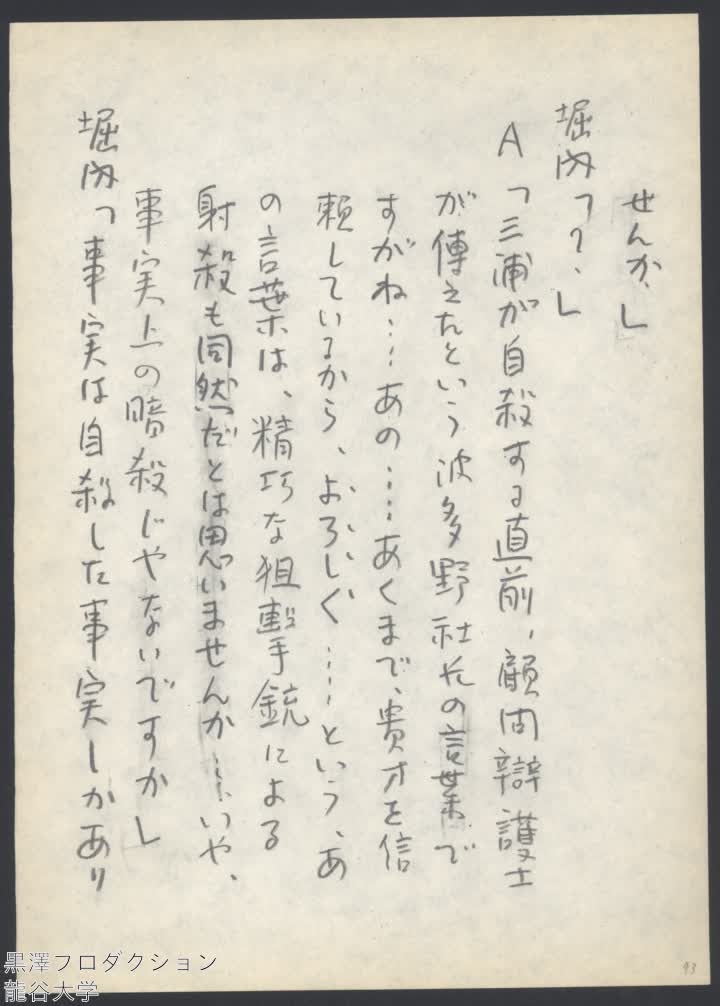 せんか」
堀内「？」
A「三浦が自殺する直前、顧問辯護士
が傳えたという波多野社長の言葉で
すがね……あの……あくまで、貴方を信
頼しているから、よろしく……という、あ
の言葉は、精巧な狙撃手銃による
射殺も同然だとは思いませんか……いや、
事実上の暗殺じやないですか」
堀内「事実は自殺した事実しかあり
93
黒澤プロダクション
龍谷大学